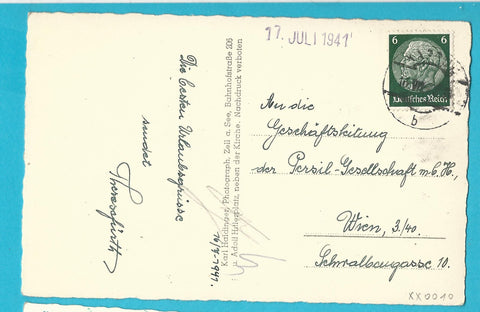 17. JULI 1941
6 6
Deutsches Reich
b
An die
Geschäftsleitung
der Persil-Gesellschaft m.b.H.,
Wien, 3/40.
Schwalbengasse 10.
Die besten Urlaubsgrüsse
sendet
16/7.1941.
Karl Haidinger, Photograph, Zell a. See, Bahnhofstraße 206
u. Adolf Hitlerplatz, neben der Kirche. Nachdruck verboten
XX0010